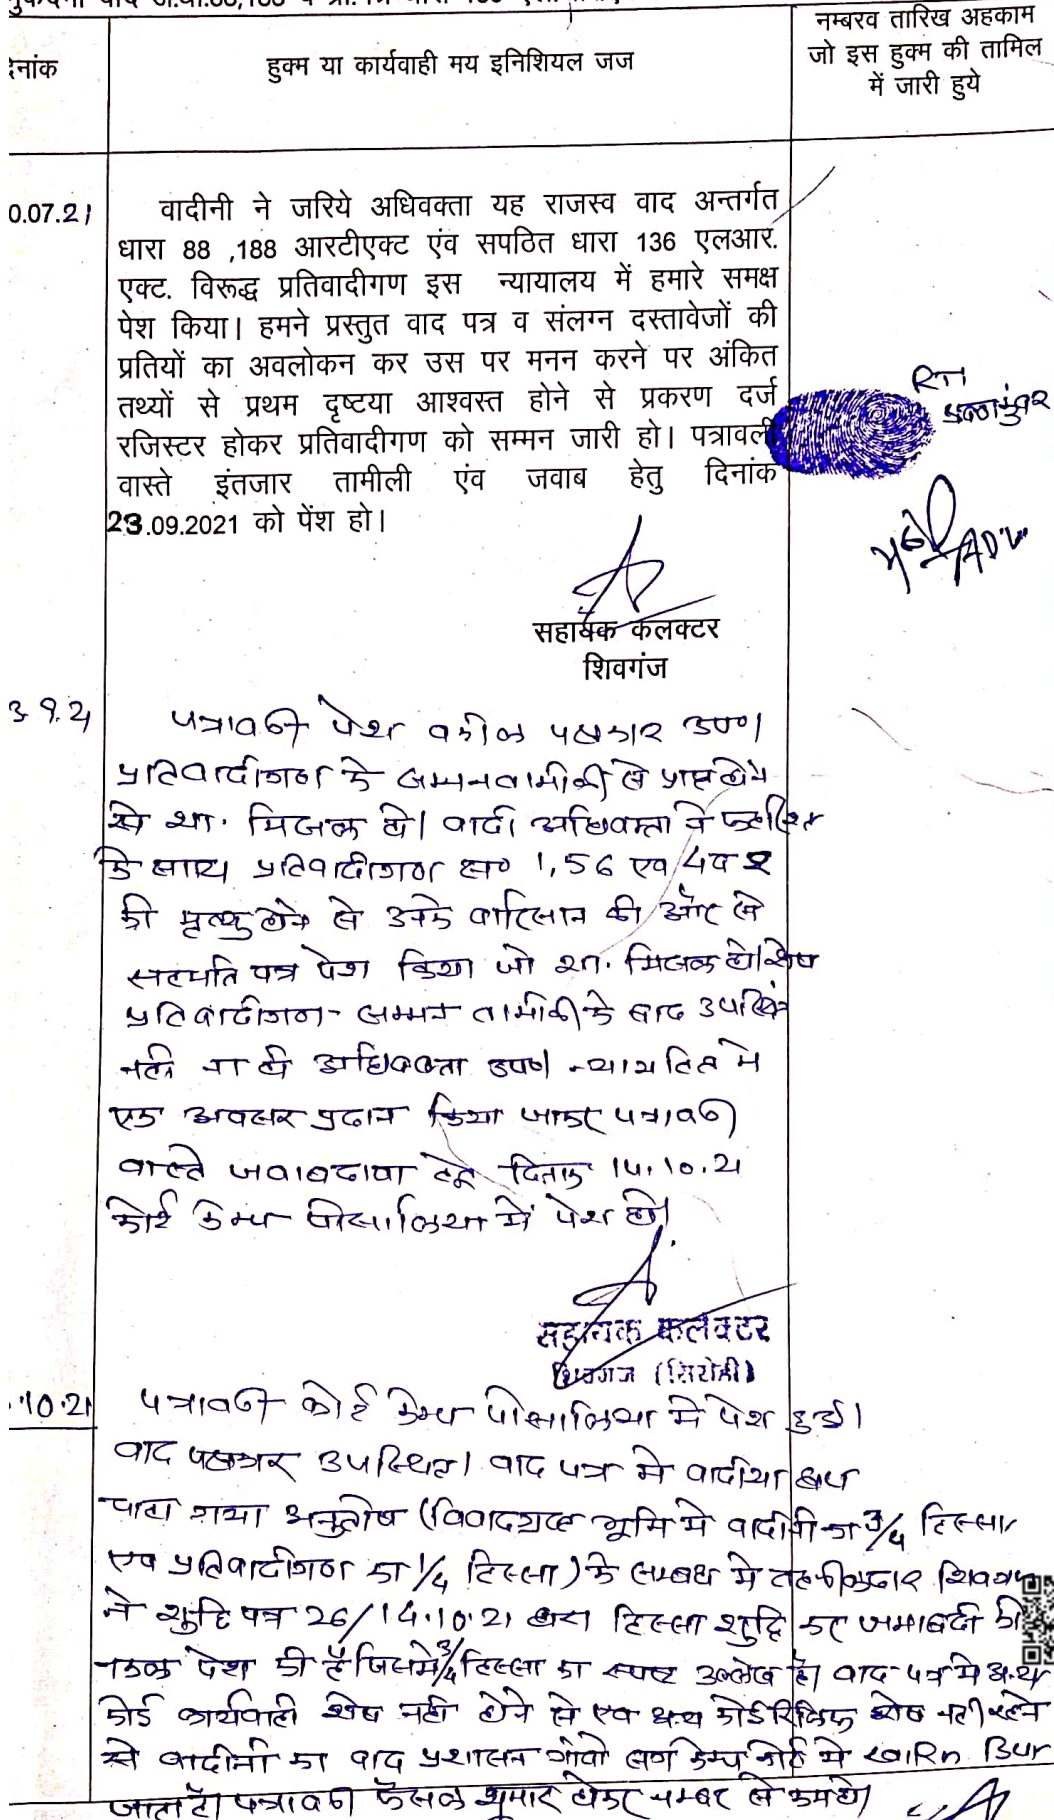 दिनांक
हुक्म या कार्यवाही मय इनिशियल जज
नम्बरव तारिख अहकाम
जो इस हुक्म की तामिल
में जारी हुये
0.07.21
वादीनी ने जरिये अधिवक्ता यह राजस्व वाद अन्तर्गत
धारा 88 ,188 आरटीएक्ट एंव सपठित धारा 136 एलआर.
एक्ट. विरूद्ध प्रतिवादीगण इस न्यायालय में हमारे समक्ष
पेश किया। हमने प्रस्तुत वाद पत्र व संलग्न दस्तावेजों की
प्रतियों का अवलोकन कर उस पर मनन करने पर अंकित
तथ्यों से प्रथम दृष्टया आश्वस्त होने से प्रकरण दर्ज
रजिस्टर होकर प्रतिवादीगण को सम्मन जारी हो। पत्रावली
वास्ते इंतजार तामीली एंव जवाब हेतु दिनांक
23.09.2021 को पेंश हो।
ADV
सहायक कलक्टर
शिवगंज
3.9.21
पत्रावली पेश वकील पक्षकार उप०।
प्रतिवादीगण के सम्मन तामीली से प्राप्त होने
से शा. मिसल हो। वादी अधिवक्ता ने
के साथ प्रतिवादीगण स० 1,56 एव 4
की मृत्यु होने से उनके वारिसान की और से
सहमति पत्र पेश किया जो शा. मिसल हो। शेष
प्रतिवादीगण - सम्मन तामीली के बाद उपस्थित
नही ना ही अधिवक्ता उप०। न्यायहित मे
एक अवसर प्रदान किया जाकर पत्रावली
वास्ते जवाबदावा हेतु दिनांक 14.10.21
कोर्ट केम्प पोसालिया में पेश हो।
सहायक कलक्टर
शिवगंज (सिरोही)
.10.21
पत्रावली कोर्ट केम्प पोसालिया मे पेश हुई।
वाद पक्षकार उपस्थित। वाद पत्र मे वादीया द्वारा
चाहा गया अनुतोष (विवादग्रस्त भूमि मे वादीनी का 3/4 हिस्सा
एव प्रतिवादीगण का 1/4 हिस्सा) के सम्बध मे तहसीलदार शिवगंज
ने शुद्धि पत्र 26/14.10.21 द्वारा हिस्सा शुद्धि कर जमाबंदी की
नकल पेश की है जिसमे 3/4 हिस्सा का स्पष्ट उल्लेख है। वाद पत्र मे अन्य
कोई कार्यवाही शेष नही होने से एव अन्य कोई रिलिफ शेष नही रहने
से वादीनी का वाद प्रशासन गांवो संग केम्प कोर्ट मे खारिज किया
जाता है। पत्रावली फैसल शुमार होकर नम्बर से कम हो।